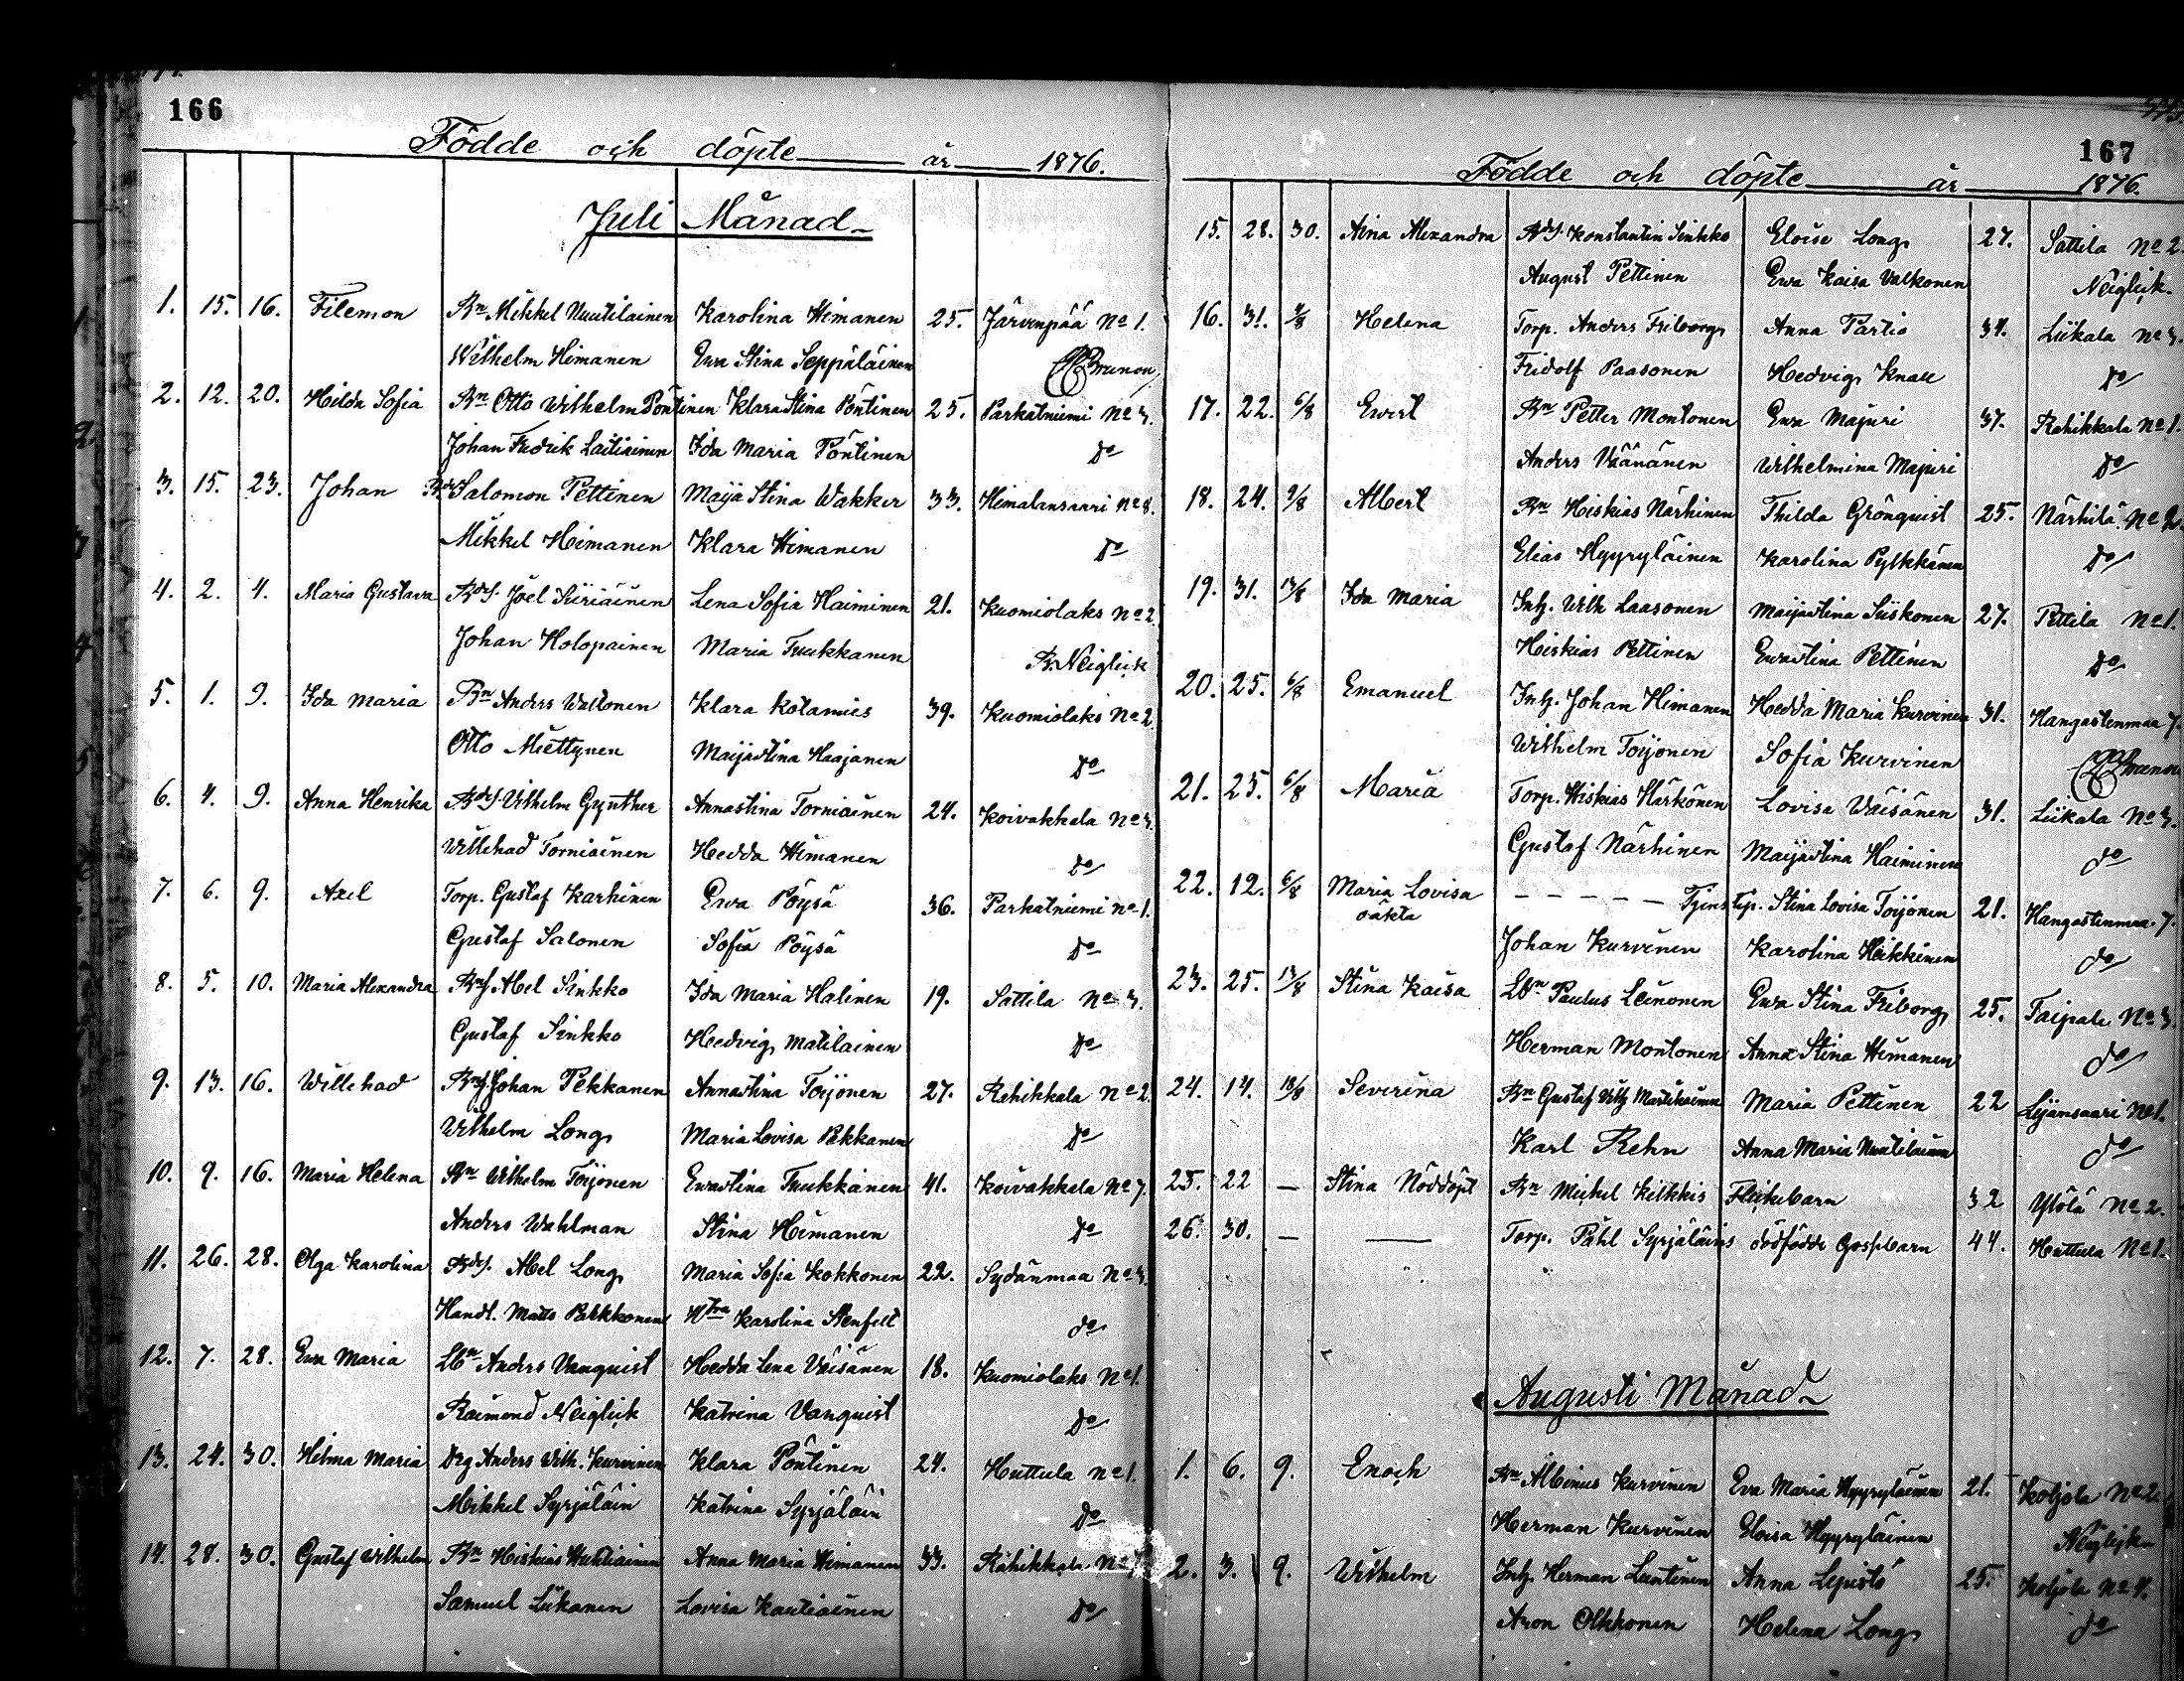 166
Födde och döpte år 1876.
Juli Månad
1. 15. 16. Filemon Bn Mikkel Nuutilainen Karolina Himanen 25. Järvenpää No 1.
Wilhelm Himanen Ewa Stina Seppäläinen Brunou
2. 12. 20. Hilda Sofia Bn Otto Wilhelm Pöntinen Klara Stina Pöntinen 25. Parkatniemi No 3.
Johan Fredrik Laitiainen Ida Maria Pöntinen do
3. 15. 23. Johan Salomon Pettinen Maija Stina Wakker 33. Himalansaari No 8.
Mikkel Heimanen Klara Himanen do
4. 2. 4. Maria Gustava Bds. Joel Siiriäinen Lena Sofia Haiminen 21. Kuomiolaks No 2.
Johan Holopainen Maria Tuukkanen Neiglick
5. 1. 9. Ida Maria Bn Anders Waltonen Klara Kotamies 39. Kuomiolaks No 2
Otto Miettynen Maijastina Haajanen do
6. 4. 9. Anna Henrika Bds. Vilhelm Gynther Annastina Torniainen 24. Koivakkala No 3.
Willehad Torniainen Hedda Himanen do
7. 6. 9. Axel Torp. Gustaf Karhinen Ewa Pöysä 36. Parkatniemi No 1.
Gustaf Salonen Sofia Pöysä do
8. 5. 10. Maria Alexandra Bns Abel Sinkko Ida Maria Halinen 19. Sattila No 3.
Gustaf Sinkko Hedvig Matilainen do
9. 13. 16. Willehad Bns Johan Pekkanen Annastina Toijonen 27. Rahikkala No 2.
Vilhelm Long Maria Lovisa Pekkanen do
10. 9. 16. Maria Helena Bn Wilhelm Toijonen Ewastina Tuukkanen 41. Koivakkala No 7.
Anders Wahlman Stina Heimanen do
11. 26. 28. Olga Karolina Bds. Abel Long Maria Sofia Kokkonen 22. Sydänmaa No 3.
Handl. Matts Pakkonen Karolina Stenfelt do
12. 7. 28. Ewa Maria Lbn Anders Vanquist Hedda Lena Väisänen 18. Kuomiolaks No 1.
Raimond Neiglick Katrina Vanquist do
13. 24. 30. Hilma Maria Drg Anders Wilh. Kurvinen Klara Pöntinen 24. Huttula No 1.
Mikkel Syrjäläin Katrina Syrjäläin do
14. 28. 30. Gustaf Wilhelm Bn Hiskias Huhtiainen Anna Maria Himanen 33. Rahikkala No
Samuel Liikanen Lovisa Kautiainen do
167
Födde och döpte år 1876.
15. 28. 30. Aina Alexandra Bds. Konstantin Sinkko Eloise Long 27. Sattila No 2.
August Pettinen Ewa Kaisa Valkonen Neiglick
16. 31. Helena Torp. Anders Friborg Anna Partio 34. Liikala No 3.
Fridolf Paasonen Hedvig Knall do
17. 22. 6/8 Ewert Bn Petter Montonen Ewa Majuri 37. Rahikkala No 1.
Anders Väänänen Wilhelmina Majuri do
18. 24. 9/8 Albert Bn Hiskias Närhinen Thilda Grönquist 25. Närhilä No 2.
Elias Hyyryläinen Karolina Pylkkänen do
19. 31. 13/8 Ida Maria Inh. Wilh Laasonen Maijastina Siiskonen 27. Pettila No 1.
Hiskias Pettinen Ewastina Pettinen do
20. 25. 6/8 Emanuel Inh. Johan Himanen Hedda Maria Kurvinen 31. Hangastenmaa 7.
Wilhelm Toijonen Sofia Kurvinen Brunou
21. 25. 6/8 Maria Torp. Hiskias Härkönen Lovisa Väisänen 31. Liikala No 3.
Gustaf Närhinen Maijastina Haiminen do
22. 12. 6/8 Maria Lovisa – – – – – Tjenstep. Stina Lovisa Toijonen 21. Hangastenmaa 7.
oäkta
Johan Kurvinen Karolina Heikkinen do
23. 25. 13/8 Stina Kaisa Lbn Paulus Leinonen Ewa Stina Friborg 25. Taipale No 3.
Herman Montonen Anna Stina Himanen do
24. 14. 18/8 Severina Bn Gustaf Vilh Martikainen Maria Pettinen 22 Lyänsaari No 1.
Karl Rehn Anna Maria Nuutilainen do
25. 22 — Stina Nöddöpt Bn Michel Kilkkis Flickebarn 32 Ylölä No 2.
26. 30. — — Torp. Påhl Syrjäläins dödfödde Gossebarn 44. Huttula No 1.
Augusti Månad
1. 6. 9. Enoch Bn Albinus Kurvinen Eva Maria Hyyryläinen 21. Koljola No 2.
Herman Kurvinen Eloisa Hyyryläinen Neiglick
2. 3. 9. Wilhelm Inh. Herman Luntinen Anna Lepistö 25. Koljola No 4.
Aron Olkkonen Helena Long do